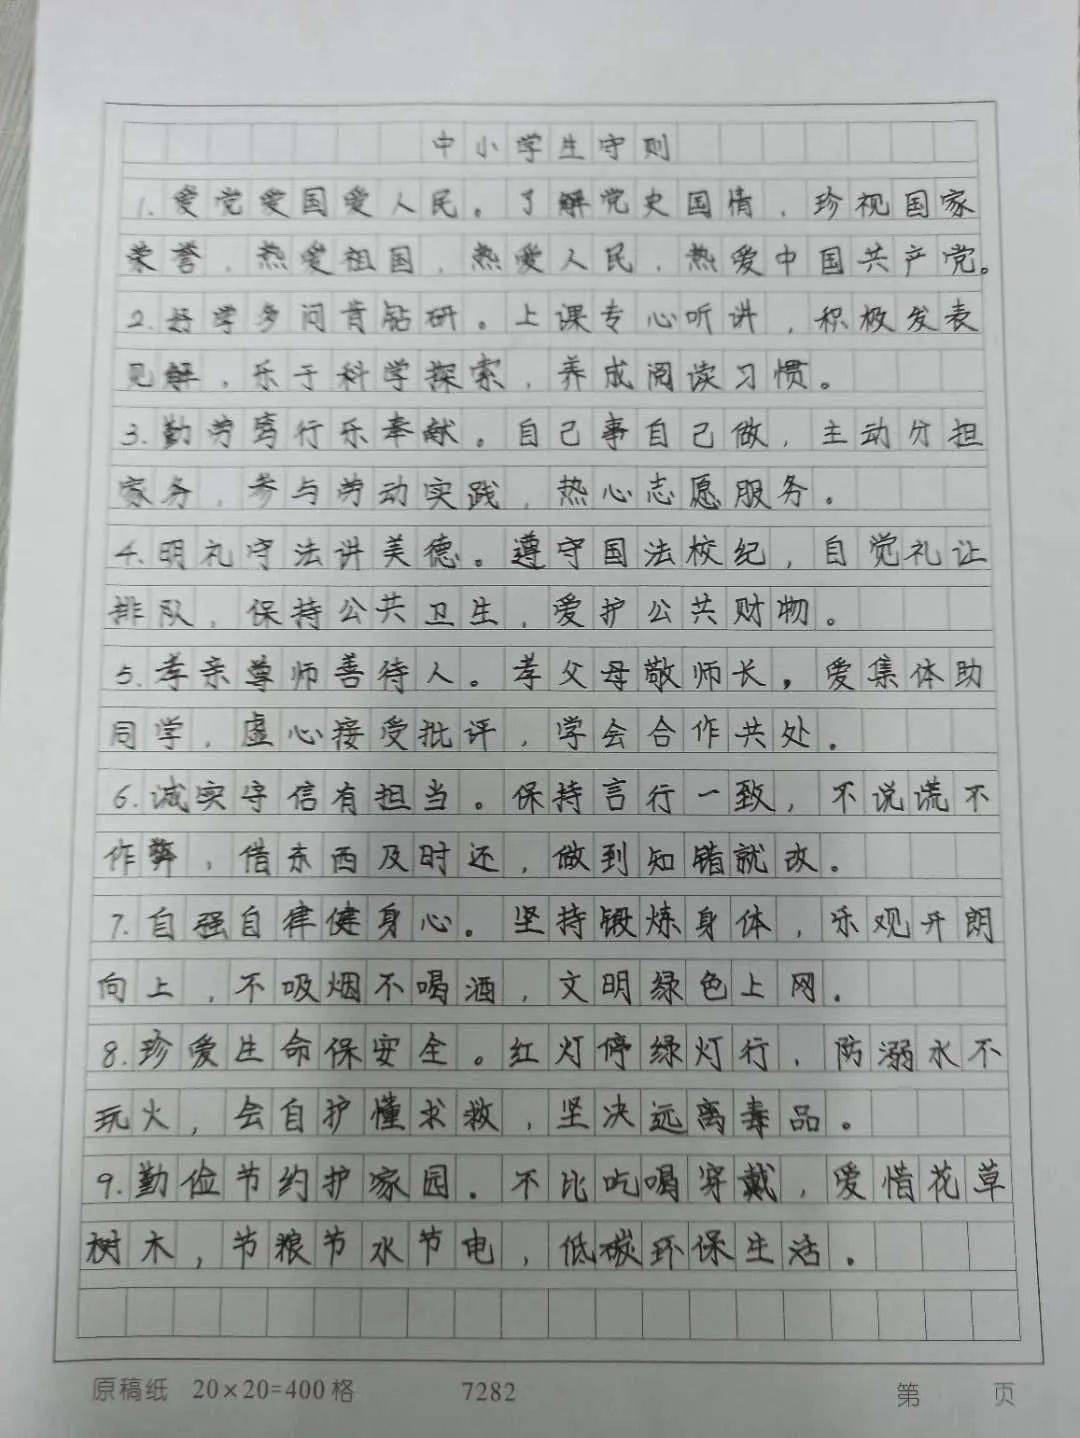 中小学生守则
1.爱党爱国爱人民。了解党史国情，珍视国家
荣誉，热爱祖国，热爱人民，热爱中国共产党。
2.好学多问肯钻研。上课专心听讲，积极发表
见解，乐于科学探索，养成阅读习惯。
3.勤劳笃行乐奉献。自己事自己做，主动分担
家务，参与劳动实践，热心志愿服务。
4.明礼守法讲美德。遵守国法校纪，自觉礼让
排队，保持公共卫生，爱护公共财物。
5.孝亲尊师善待人。孝父母敬师长，爱集体助
同学，虚心接受批评，学会合作共处。
6.诚实守信有担当。保持言行一致，不说谎不
作弊，借东西及时还，做到知错就改。
7.自强自律健身心。坚持锻炼身体，乐观开朗
向上，不吸烟不喝酒，文明绿色上网。
8.珍爱生命保安全。红灯停绿灯行，防溺水不
玩火，会自护懂求救，坚决远离毒品。
9.勤俭节约护家园。不比吃喝穿戴，爱惜花草
树木，节粮节水节电，低碳环保生活。
原稿纸 20×20=400格 7282 第 页